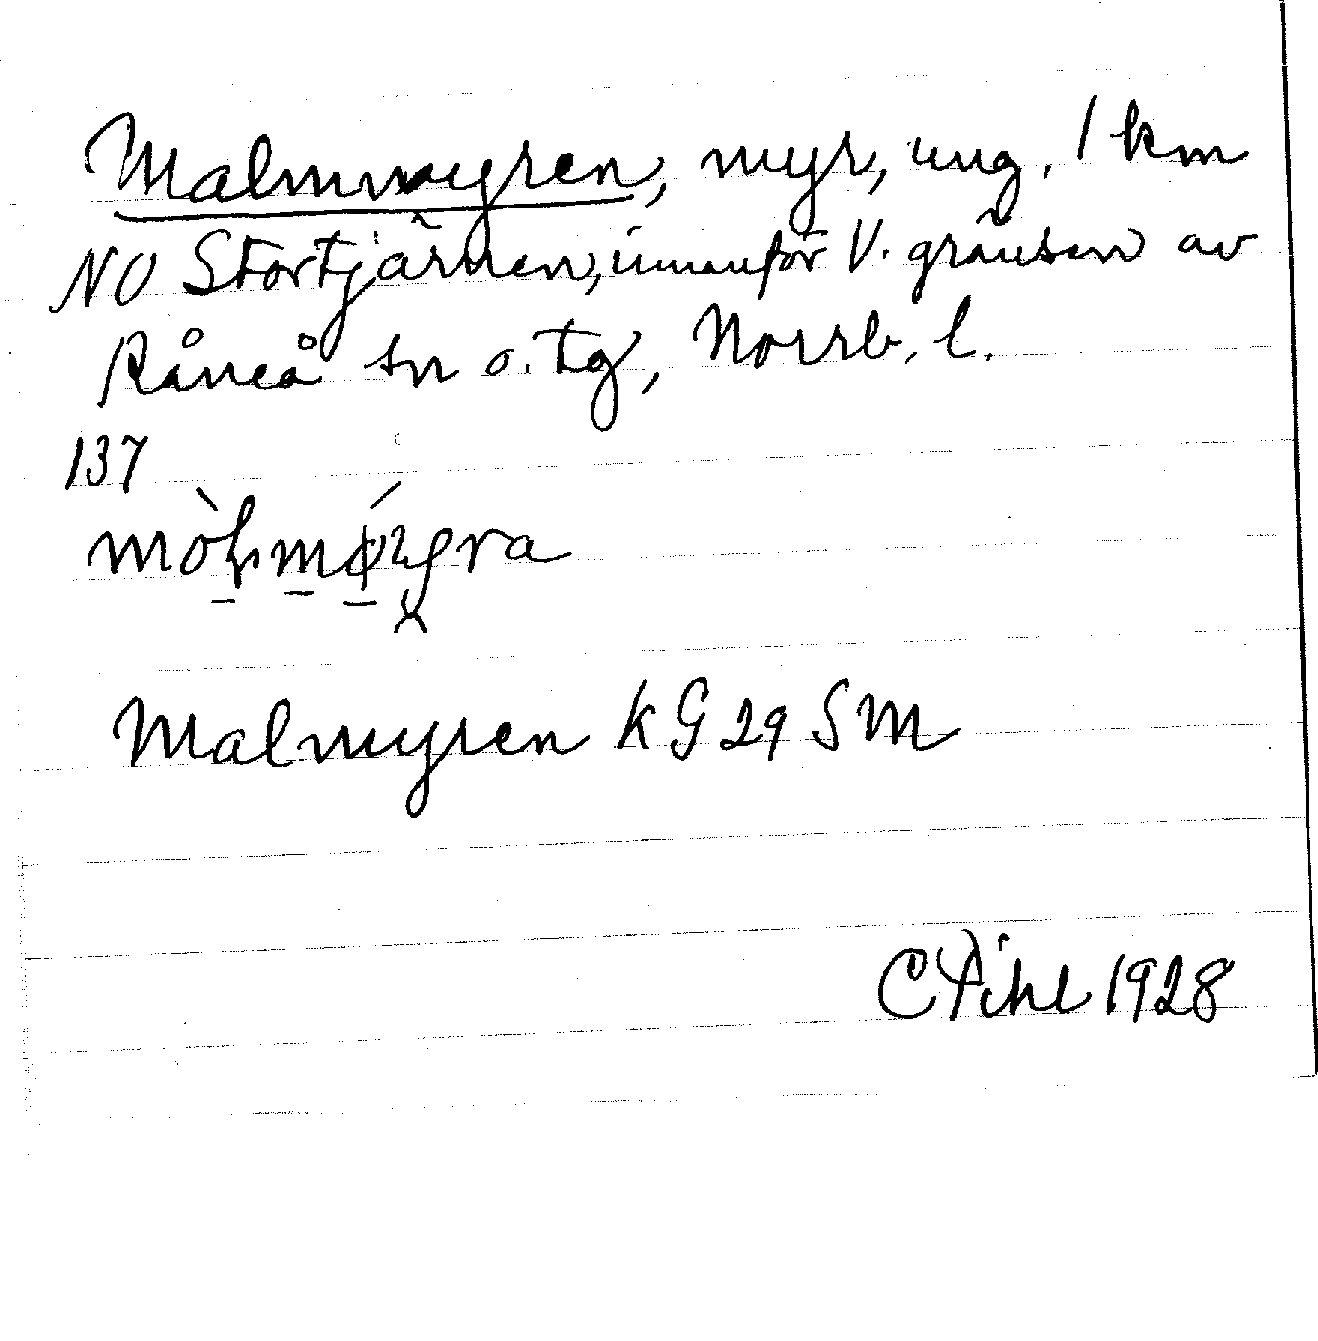 Malmmyren, myr, ung. 1 km
NO Stortjärnen, innanför V. gränsen av
Råneå sn o. tg, Norrb. l.
137
Malmyren KG 29 SM
C Pihl 1928